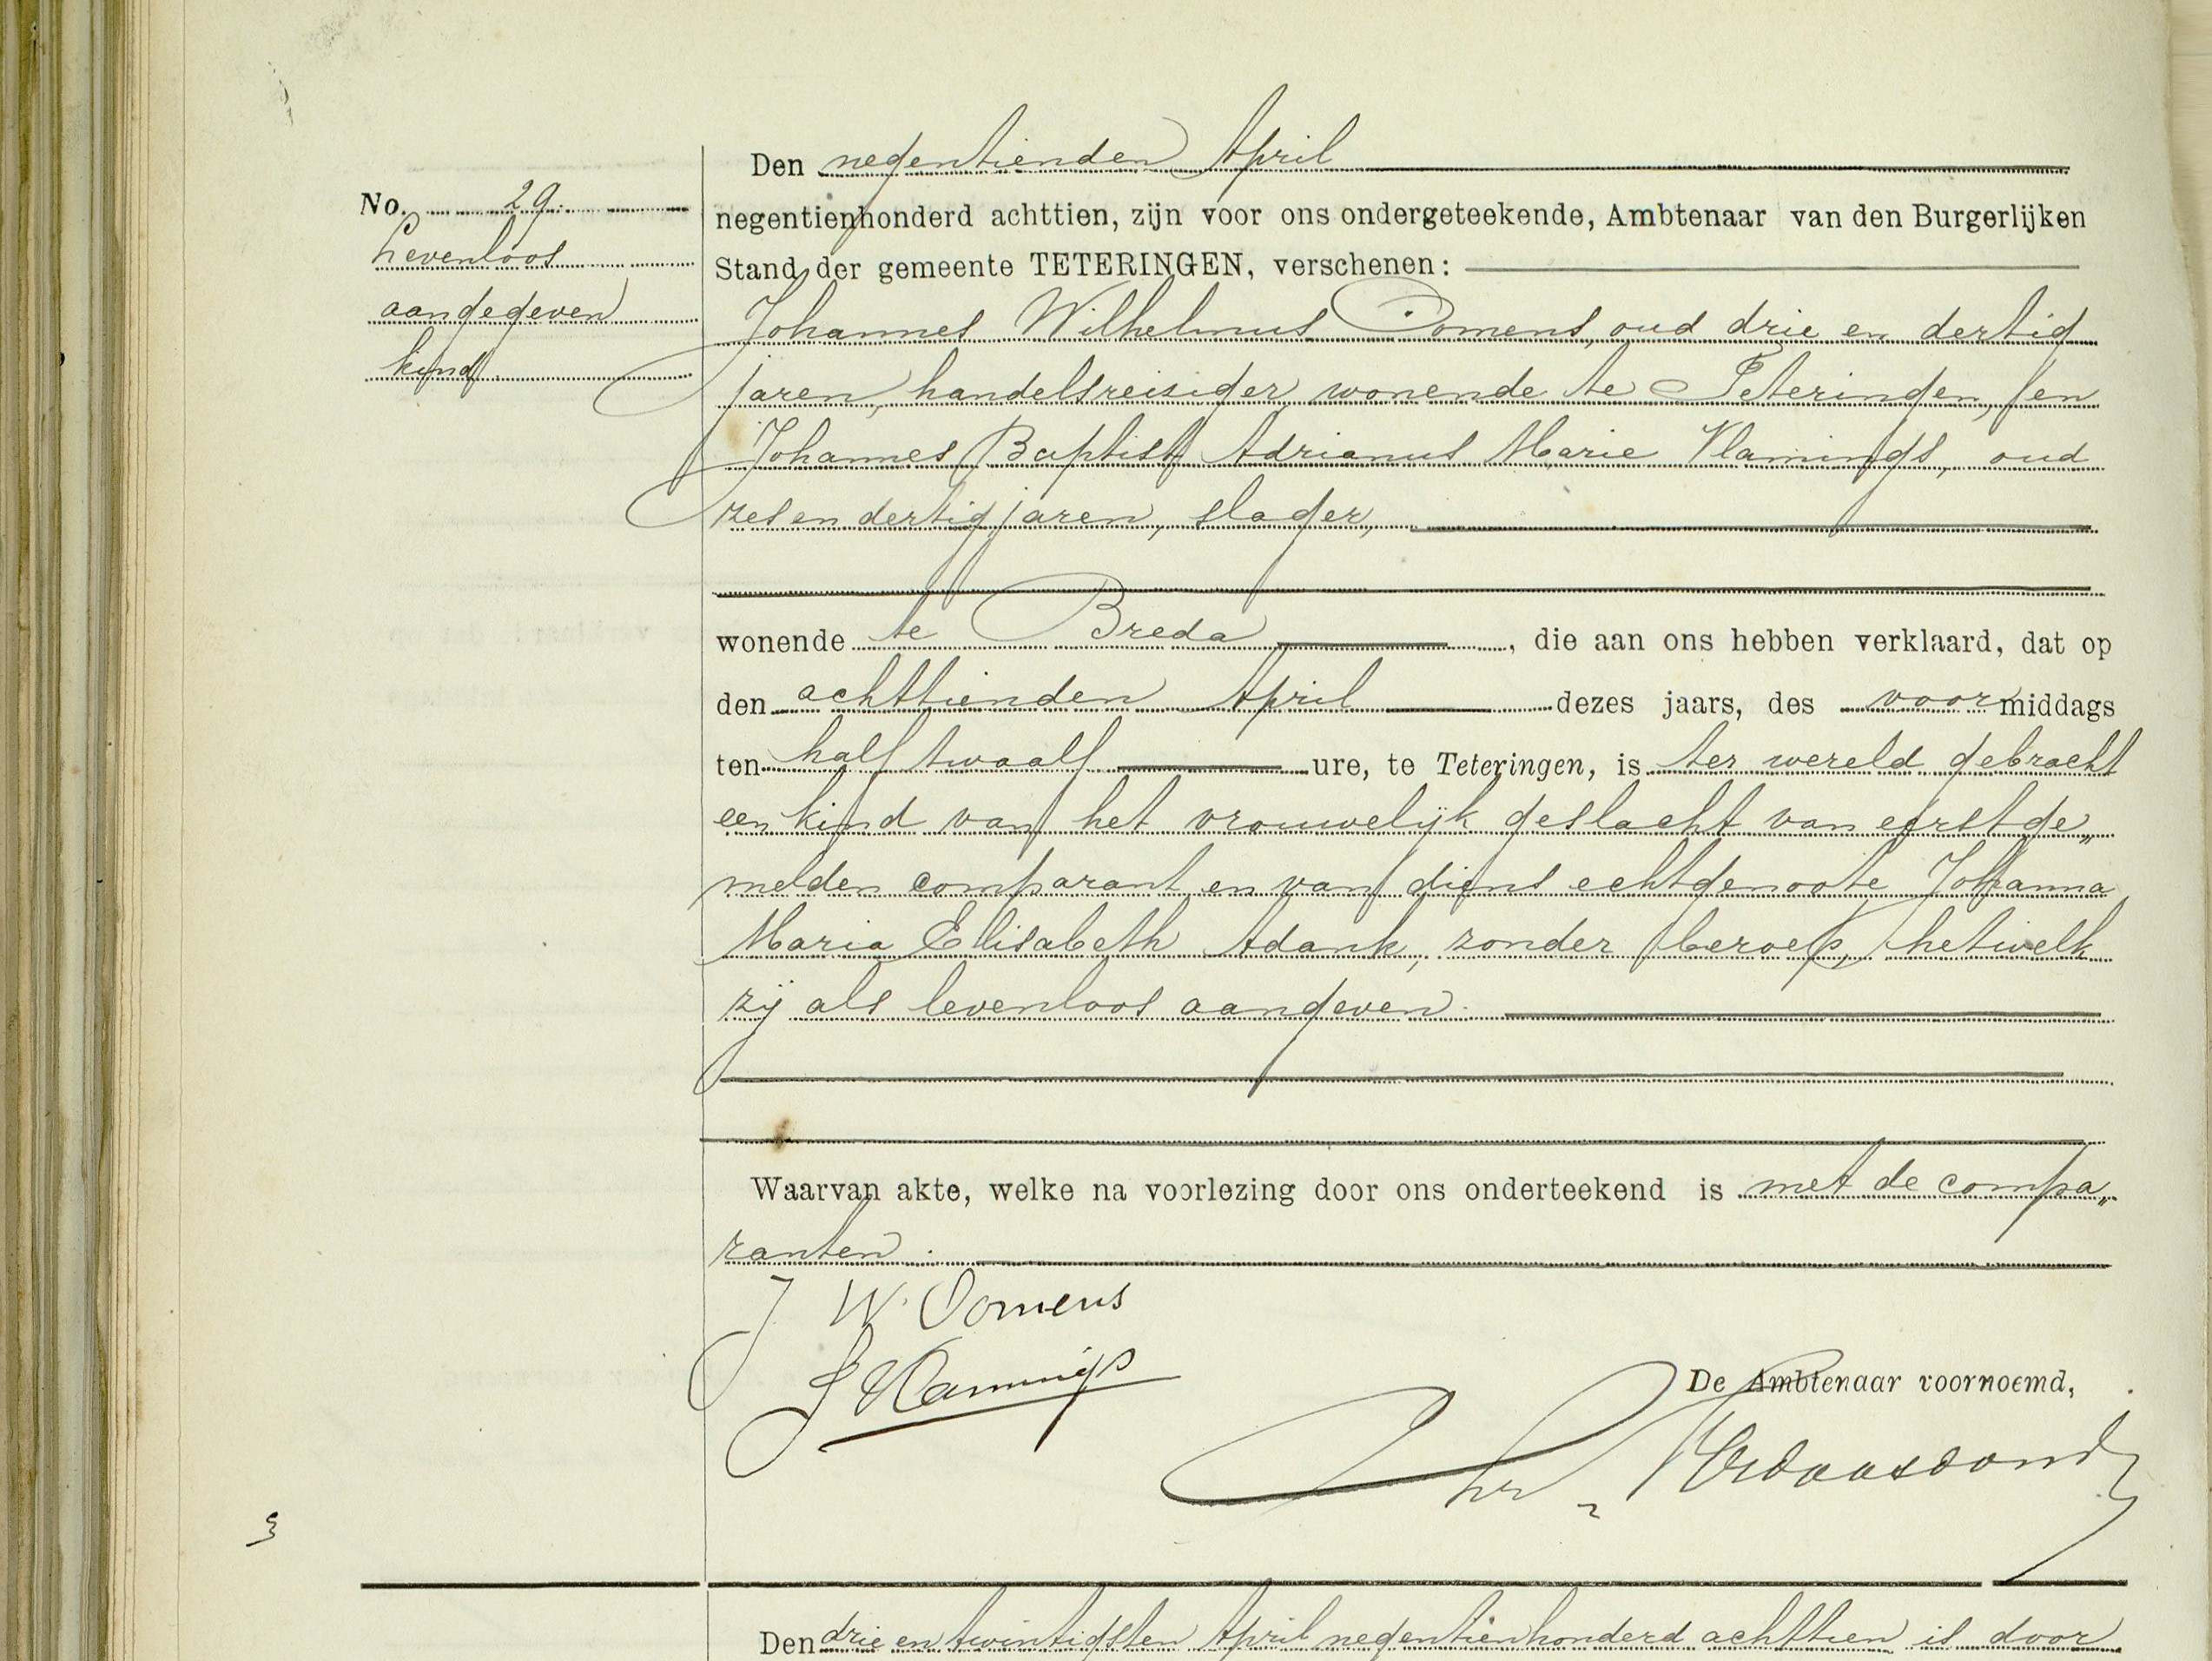 Den negentienden April
No. 29.
negentienhonderd achttien, zijn voor ons ondergeteekende, Ambtenaar van den Burgerlijken
Levenloos
Stand der gemeente TETERINGEN, verschenen:
aangegeven
Johannes Wilhelmus Oomens, oud drie en dertig
kind.
jaren, handelsreiziger, wonende te Teteringen, en
Johannes Baptist Adrianus Marie Vlamings, oud
zes en dertig jaren, slager,
wonende te Breda, die aan ons hebben verklaard, dat op
den achttienden April dezes jaars, des voormiddags
ten half twaalf ure, te Teteringen, is ter wereld gebracht
een kind van het vrouwelijk geslacht van eerstge„
melden comparant en van diens echtgenoote Johanna
Maria Elisabeth Adank, zonder beroep, hetwelk
zij als levenloos aangeven.
Waarvan akte, welke na voorlezing door ons onderteekend is met de compa„
ranten.
J W. Oomens
J Vlamings
De Ambtenaar voornoemd,
Den drie en twintigsten April negentienhonderd achttien is door